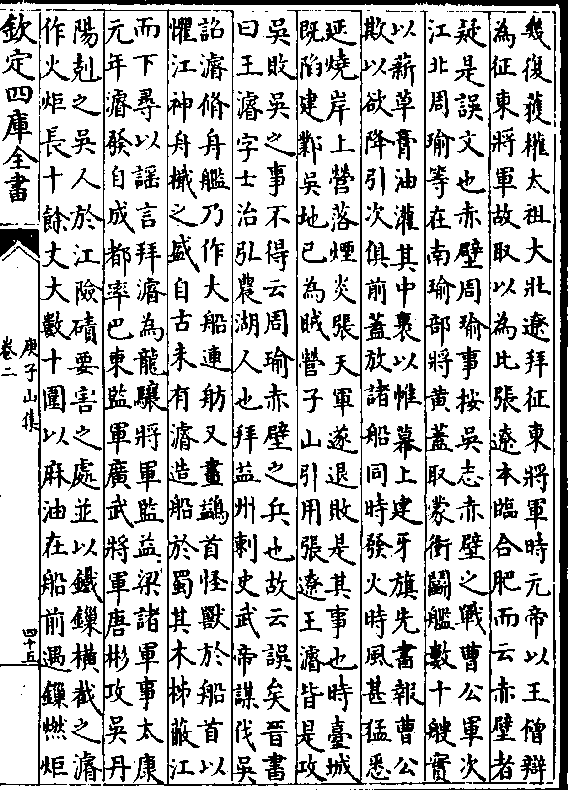 幾復獲權太祖大壯遼拜征東將軍時元帝以王僧辯
為征東將軍故取以為比張遼本臨合肥而云赤壁者
疑是誤文也赤壁周瑜事按吳志赤壁之戰曹公軍次
江北周瑜等在南瑜部將黃蓋取蒙衝鬭艦數十艘實
以薪草膏油灌其中裹以帷幕上建牙旗先書報曹公
欺以欲降引次俱前蓋放諸船同時發火時風甚猛悉
延燒岸上營落煙炎張天軍遂退敗是其事也時臺城
既陷建鄴吳地已為賊營子山引用張遼王濬皆是攻
吳敗吳之事不得云周瑜赤壁之兵也故云誤矣晉書
曰王濬字士治弘農湖人也拜益州刺史武帝謀伐吳
詔濬脩舟艦乃作大船連舫又畫鷁首怪獸於船首以
懼江神舟檝之盛自古未有濬造船於蜀其木杮蔽江
而下尋以謡言拜濬為龍驤將軍監益梁諸軍事太康
元年濬發自成都率巴東監軍廣武將軍唐彬攻吳丹
陽剋之吳人於江險磧要害之處並以鐵鏁橫截之濬
作火炬長十餘丈大數十圍以麻油在船前遇鏁燃炬
欽定四庫全書
庾子山集
卷二
四十五